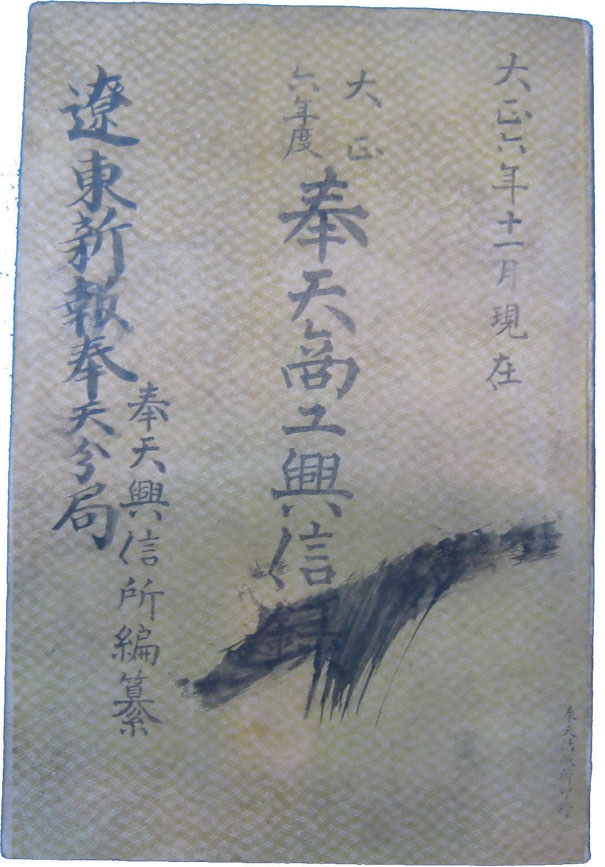 大正六年十一月現在
大正
六年度
奉天商工興信
奉天興信所編纂
遼東新報奉天分局